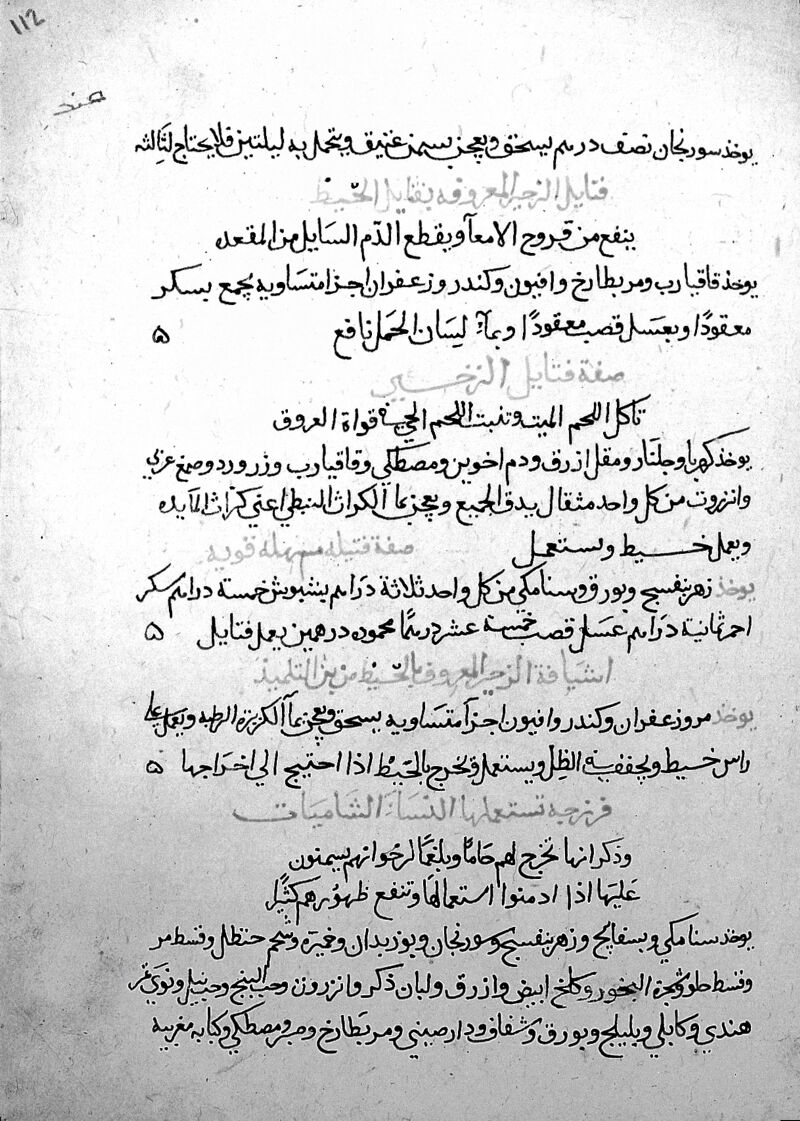 ١١٢
هند
يوخذ سورنجان نصف درهم يسحق ويعجن بسمن عتيق ويتحمل به ليلتين فلا يحتاج لثالثه
فتايل الزحير المعروفه بفتايل الخيط
ينفع من قروح الامعآ ويقطع الدم السايل من المقعده
يوخذ قاقيا رب ومر بطارخ وافيون وكندر وزعفران اجزا متساويه يجمع بسكر
معقودًا وبعسل قصب معقودًا وبمآء لسان الحمل نافع ۵
صفة فتايل
تاكل اللحم الميت وتنبت اللحم الحي في فواة العروق
يوخذ كهربا وجلنار ومقل ازرق ودم اخوين ومصطكي وقاقيا رب وزر ورد وصمغ عربي
وانزروت من كل واحد مثقال يدق الجميع ويعجن بمآ الكراث النبطي اعني كراث المآيده
ويعمل خيط ويستعمل صفة فتيله مسهله قويه
يوخذ زهر بنفسج وبورق وسنامكي من كل واحد ثلاثة دراهم بشبوش خمسة دراهم سكر
احمر ثمانية دراهم عسل قصب خمسة عشر درهمًا محموده درهمين يعمل فتايل ۵
اشيافة الزحير المعروف بالخيط من بن التلميذ
يوخذ مر وزعفران وكندر وافيون اجزآ متساويه يسحق ويعجن بمآ الكزبرة الرطبه ويعمل علي
راس خيط ويجفف في الظل ويستعمل وتخرج بالخيط اذا احتيج الي اخراجها ۵
فرزجه تستعملها النسآء الشاميات
وذكر انها تخرج لهم خامًا وبلغمًا لزجًا وانهم يسمنون
عليها اذا ادمنوا استعمالها وتنفع ظهورهم كثيرًا
يوخذ سنامكي وبسفايج وزهر بنفسج وسورنجان وبوزيدان وخميرة وشحم حنظل وقسط مر
وقسط حلو وشجرة البخور وكلخ ابيض وازرق ولبان ذكر وانزروت وحب البنج وحب نيل ونوي تمر
هندي وكابلي وبليلج وبورق وشقاف ودارصيني ومر بطارخ وصبر ومصطكي وكبابه مغربيه